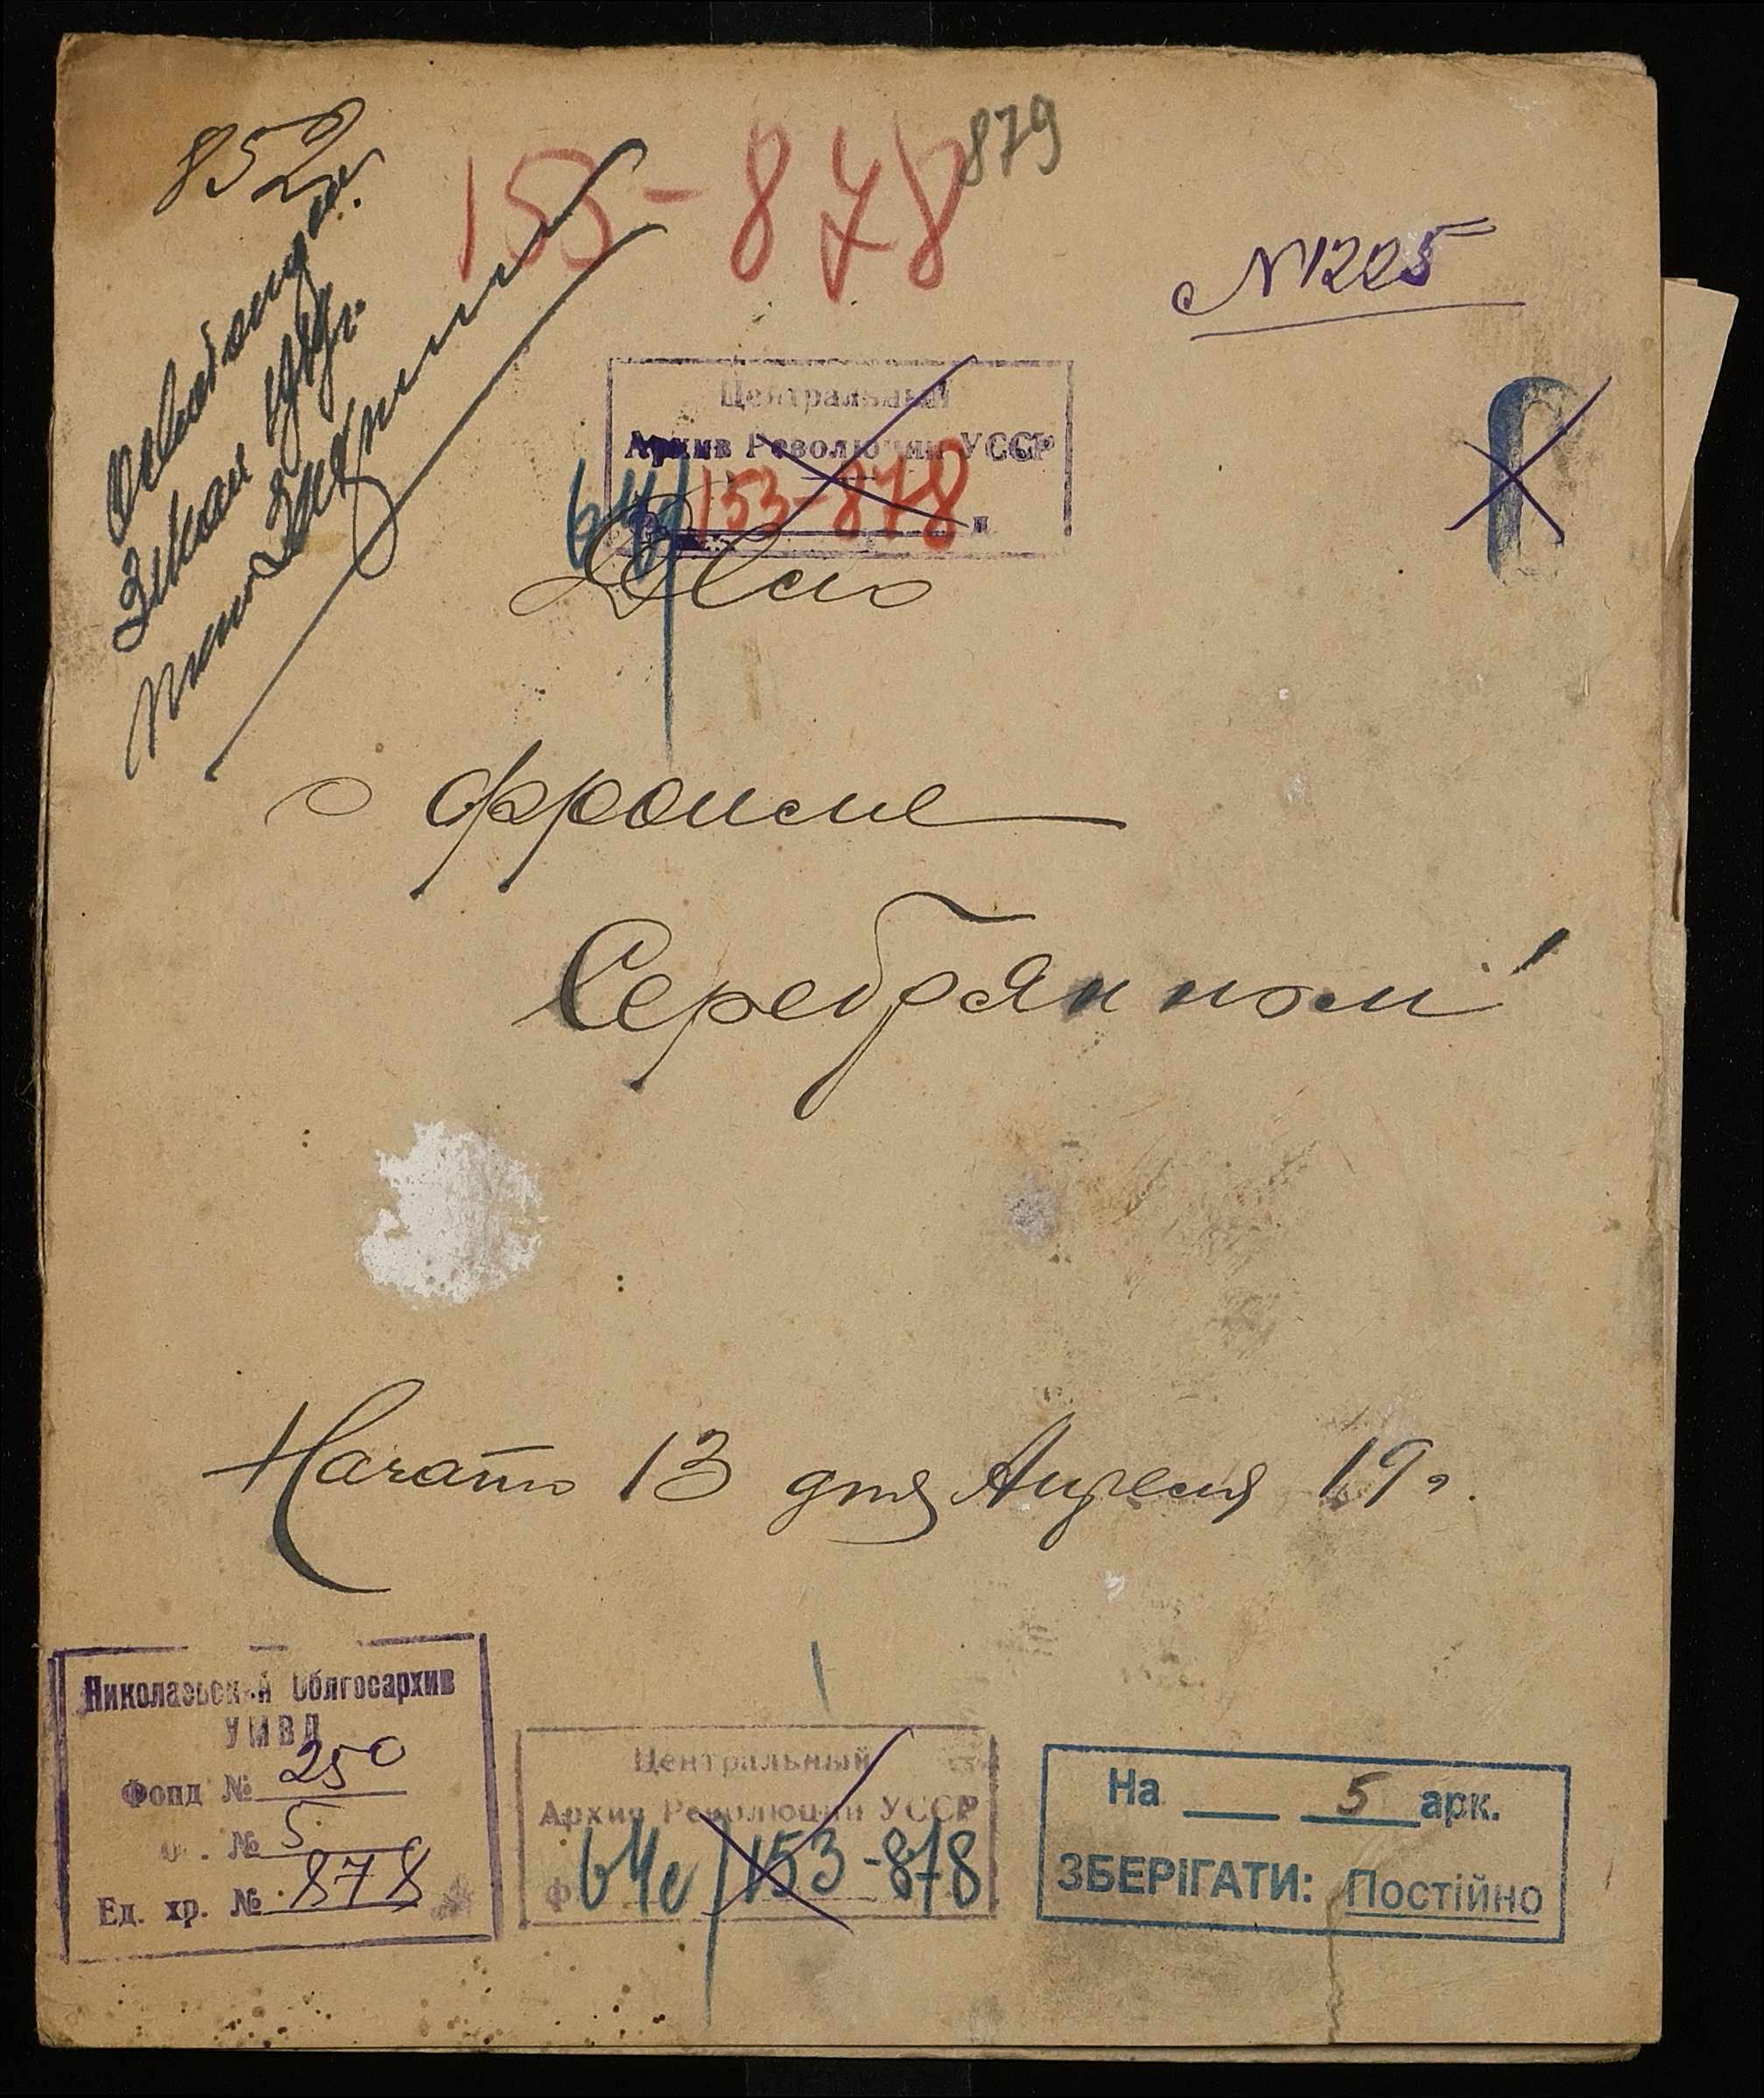 852
153-878
879
№1225
Центральный
Архив Революции УССР
64с/153-878
Дело
о Фроиме
Серебрянном
Начато 13 дня Апреля 19 г.
Николаевский Облгосархив
УМВД
Фонд № 250
№ 5
Ед. хр. № 878
Центральный
Архив Революции УССР
Ф 64с/153-878
На 5 арк.
ЗБЕРІГАТИ: Постійно